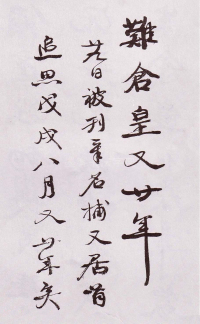 難倉皇又廿年
日被刊章名捕又居首
追思戊戌八月又廿年矣